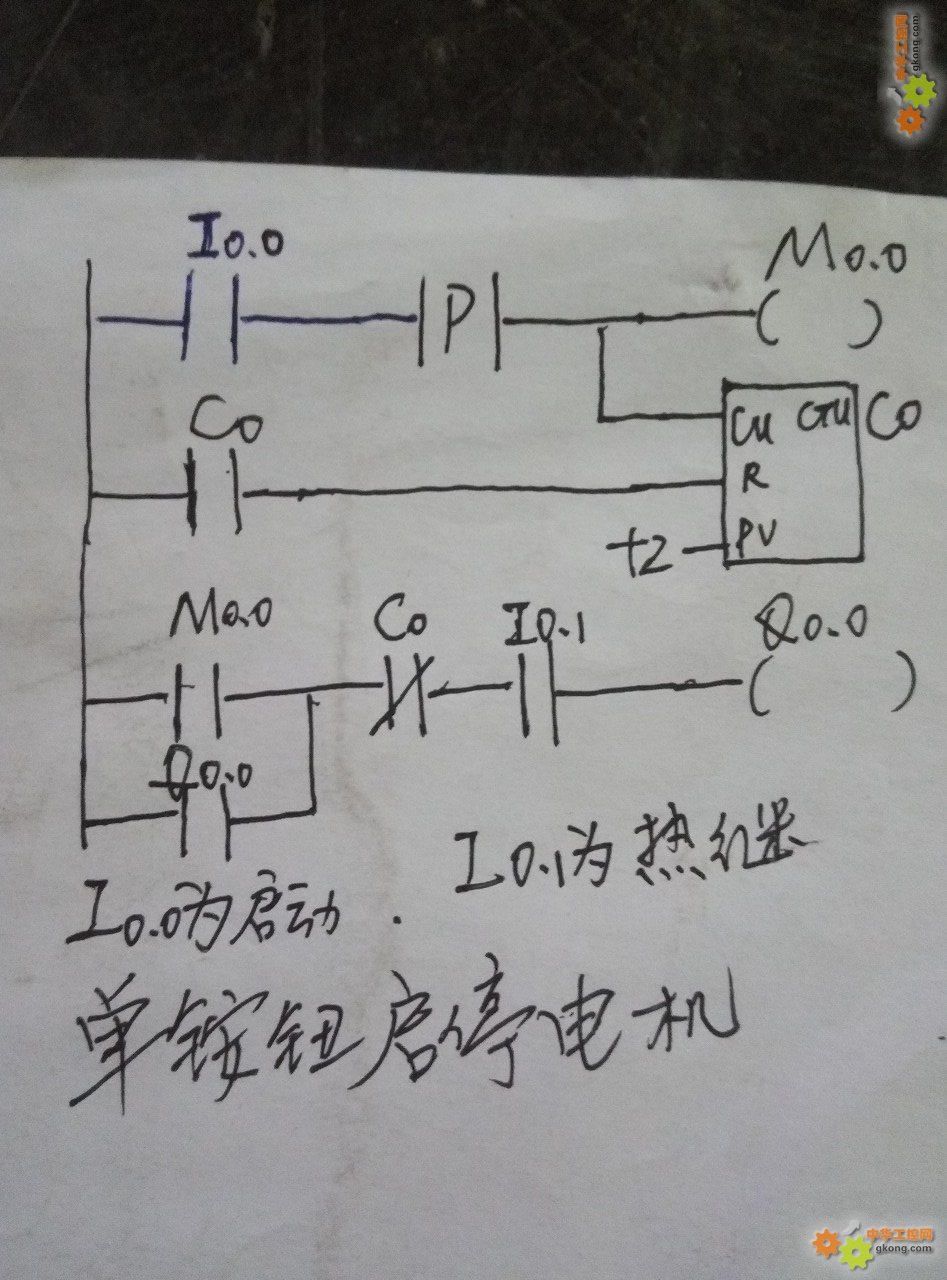 中华工控网
gkong.com
I0.0
M0.0
P
C0
CU CTU C0
R
+2 PV
M0.0 C0 I0.1 Q0.0
Q0.0
I0.1为热继
I0.0为启动.
单按钮启停电机
中华工控网
gkong.com